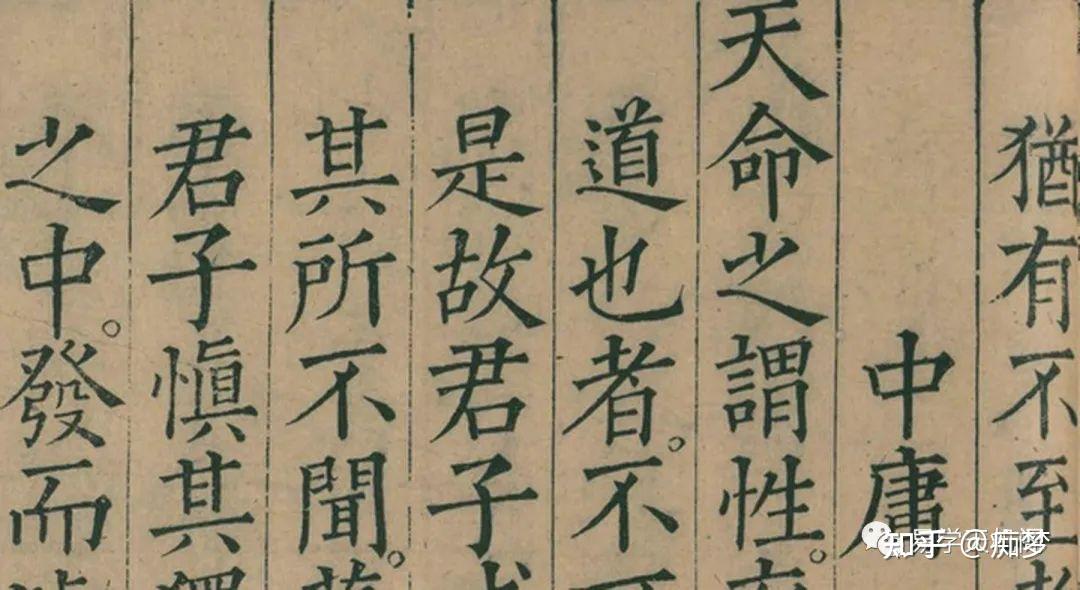 猶有不至
中庸
天命之謂性。
道也者。不
是故君子
其所不聞。
君子慎其
之中。發而
知乎 @痴梦